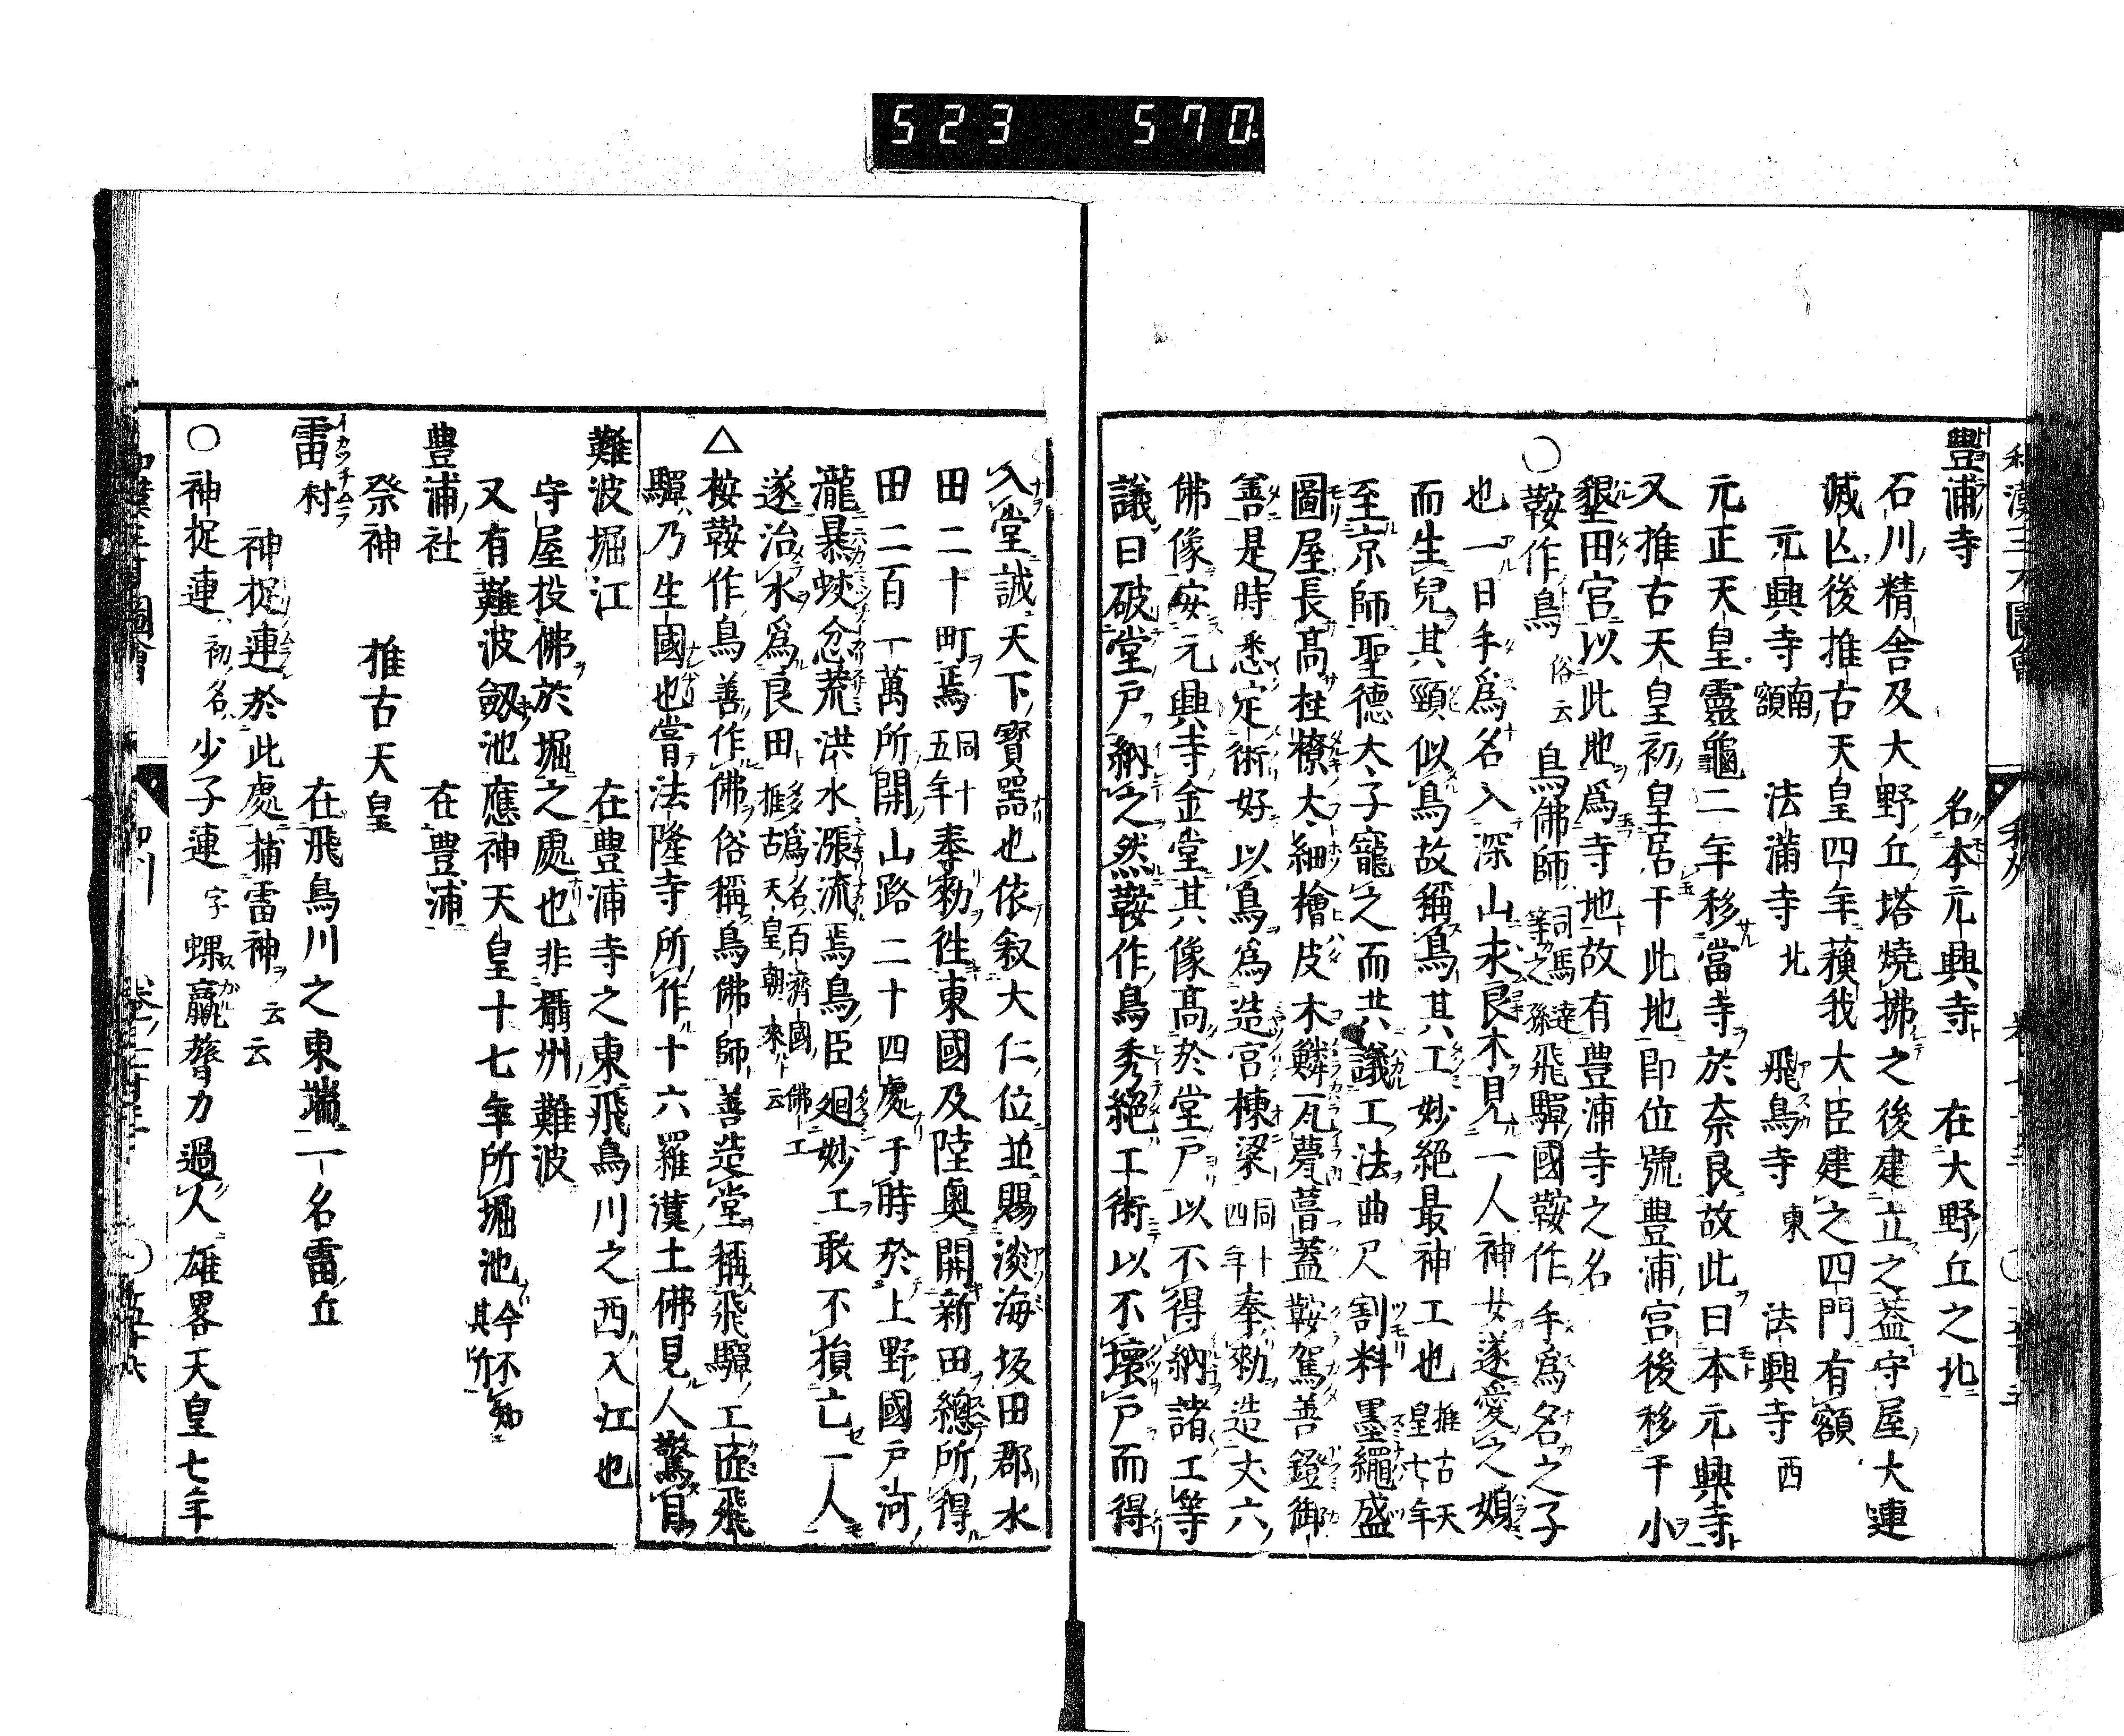 523 570
豐浦寺 名本元興寺 在大野丘之北
石川精舎及大野丘塔燒拂之後建立之蓋守屋大連
滅亡後推古天皇四年蘓我大臣建之四門有額
元興寺 南額 法滿寺 北 飛鳥寺 東 法興寺 西
元正天皇靈龜二年移當寺於奈良故此曰本元興寺
又推古天皇初皇居于此地即位號豊浦宮後移于小
墾田宮以此地爲寺地故有豊浦寺之名
○鞍作鳥 俗云鳥佛師 司馬達等之孫 飛騨國鞍作手爲名之子
也一日手爲名入深山求良木見一人神女遂愛之娠
而生兒其頸似鳥故稱鳥其工妙絶最神工也 推古天皇十八年
至京師聖德太子寵之而共議工法曲尺割料墨繩盛
圖屋長高柱橑太細檜皮木鱗瓦甍葺蓋鞍駕善鐙御
善是時悉定術好以鳥爲造宮棟梁 同十四年 奉勅造丈六
佛像安元興寺金堂其像高於堂戸以不得納諸工等
議曰破堂戸納之然鞍作鳥秀絶工術以不壞戸而得
入堂誠天下寳噐也依叙大仁位並賜淡海坂田郡水
田二十町焉 同十五年 奉勅徃東國及陸奥開新田總所得
田二百一萬所開山路二十四處于時於上野國戸河
瀧暴蛟忿荒洪水漲流焉鳥臣廻妙工敢不損亡一人
遂治水爲良田 推古天皇朝來 百濟國佛工 云
△桉鞍作鳥善作佛俗稱鳥佛師善造堂稱飛騨工匠飛
騨乃生國也甞法隆寺所作十六羅漢土佛見人驚目
難波堀江 在豊浦寺之東飛鳥川之西入江也
守屋投佛於堀之處也非攝州難波
又有難波劔池應神天皇十七年所堀池 今不知其所
豊浦社 在豊浦
祭神 推古天皇
雷村 在飛鳥川之東端一名雷丘
神捉連於此處捕雷神 云云
○神捉連 初名 少子連 字 蜾蠃膂力過人雄畧天皇七年